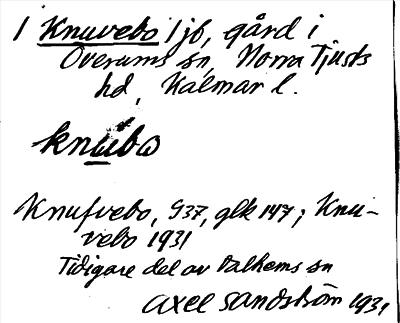 1 Knuvebo 1 jb, gård i
Överums sn, Norra Tjusts
hd, Kalmar l.
knubo
Knufvebo, 937, glk 147; Knu-
vebo 1931
Tidigare del av Dalhems sn
Axel Sandström 1931